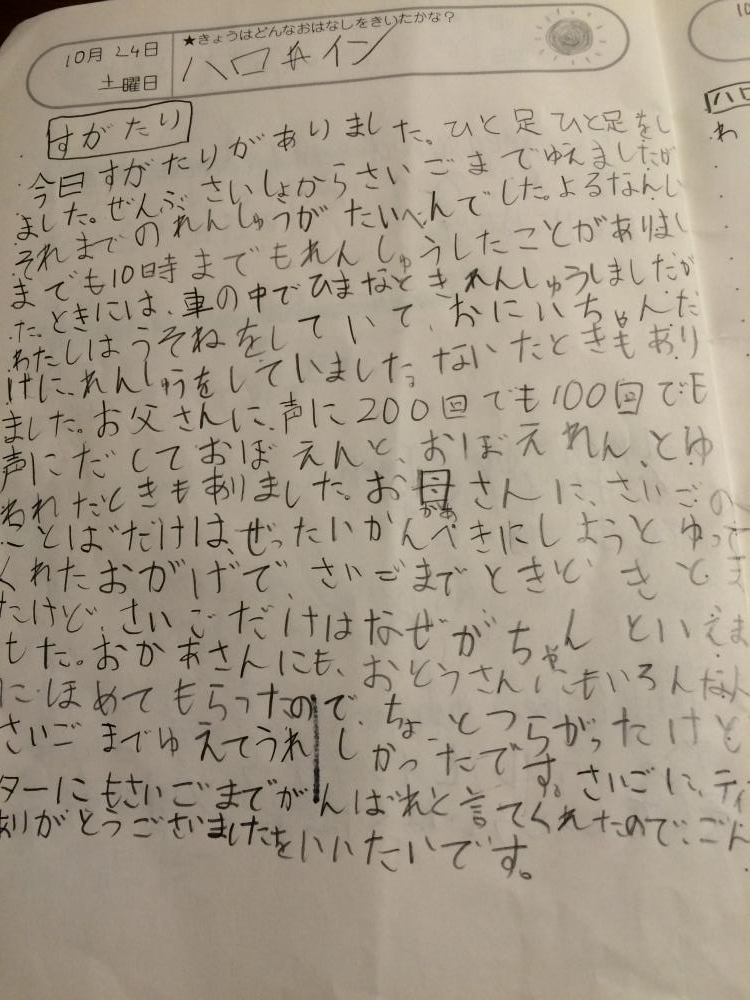 ★きょうはどんなおはなしをきいたかな？
10月24日
土曜日
ハロ井イン
すがたり
今日すがたりがありました。ひと足ひと足をし
ました。ぜんぶさいしょからさいごまでゆえましたが
それまでのれんしゅうがたいへんでした。よるなんじ
までも10時までもれんしゅうしたことがありまし
た。ときには、車の中でひまなときれんしゅうしましたが
わたしはうそねをしていて、おにいちゃんだ
けに、れんしゅうをしていました。ないたときもあり
ました。お父さんに、声に200回でも100回でも
声にだしておぼえんと、おぼえれん、とゆ
われたときもありました。お母さんに、さいごの
かあ
ことばだけは、ぜったいかんぺきにしようとゆって
くれたおがげで、さいごまでときどきとま
たけど、さいごだけはなぜがちゃんといえま
もた。おかあさんにも、おとうさんにもいろんな人
にほめてもらったので、ちょっとつらがったけど
さいごまでゆえてうれしかったです。さいごに、ティ
ターにもさいごまでがんばれと言てくれたので、ごん
ありがとうございましたをいいたいです。
10
ハロ
わ